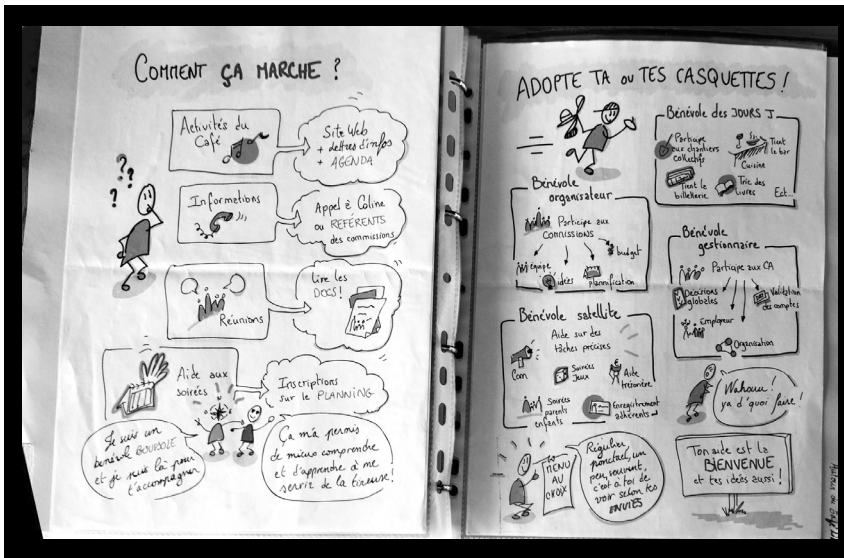 COMMENT ÇA MARCHE ?
Activités du
Café
Site Web
+ lettres d'infos
+ AGENDA
? ? ?
Informations
Appel à Coline
ou RÉFÉRENTS
des commissions
Réunions
Lire les
DOCS !
Aide aux
soirées
Inscriptions
sur le PLANNING
Je suis un
bénévol BOUSSOLE
et je suis là pour
t'accompagner
Ça m'a permis
de mieux comprendre
et d'apprendre à me
servir de la tireuse !
ADOPTE TA ou TES CASQUETTES !
Bénévole des JOURS J
Participe
aux chantiers
collectifs
Tient
le bar
Cuisine
Tient la
billetterie
Trie des
livres
Ect...
Bénévole
organisateur
Participe aux
COMMISSIONS
budget
équipe
idées
plannification
Bénévole
gestionnaire
Participe au CA
Décisions
globales
Validation
des comptes
Employeur
Organisation
Bénévole satellite
Aide sur des
tâches précises
Com
Soirées
Jeux
Aide
trésorière
Soirées
parents
enfants
Enregistrement
adhérents
Wahouu !
ya d'quoi faire !
MENU
AU
CHOIX
Régulier,
ponctuel, un
peu, souvent,
c'est à toi de
voir selon tes
ENVIES
Ton aide est la
BIENVENUE
et tes idées aussi !